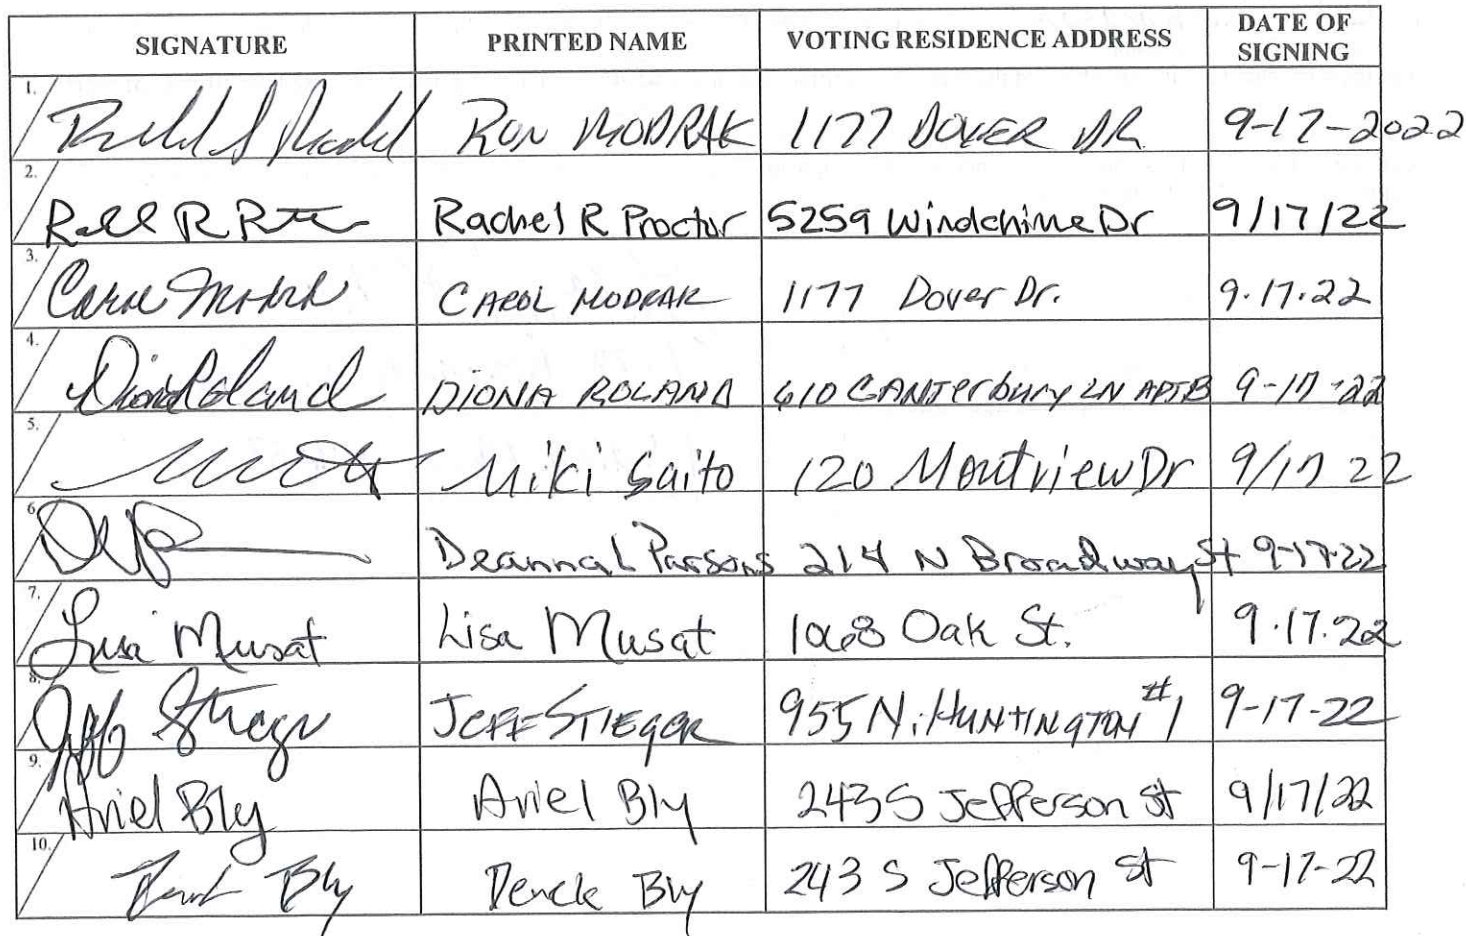 SIGNATURE PRINTED NAME VOTING RESIDENCE ADDRESS DATE OF SIGNING
1. RON MODRAK 1177 DOVER DR 9-17-2022
2. Rachel R Proctor 5259 Windchime Dr 9/17/22
3. CAROL MODRAK 1177 Dover Dr. 9.17.22
4. Diona Roland DIONA ROLAND 610 CANTerbury LN APT B 9-17-22
5. Miki Saito 120 Montview Dr 9/17 22
6. Deanna L Parsons 214 N Broadway St 9-17-22
7. Lisa Musat Lisa Musat 1068 Oak St. 9.17.22
8. Jeff JEFF STIEGER 955 N. HUNTINGTON #1 9-17-22
9. Ariel Bly Ariel Bly 243 S Jefferson St 9/17/22
10. Bly Derick Bly 243 S Jefferson St 9-17-22